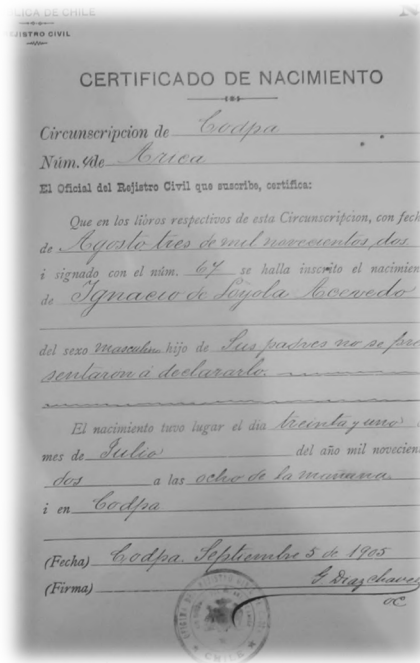 LICA DE CHILE
EJISTRO CIVIL
CERTIFICADO DE NACIMIENTO
Circunscripcion de Codpa
Núm. de Arica
El Oficial del Rejistro Civil que suscribe, certifica:
Que en los libros respectivos de esta Circunscripcion, con fech
de Agosto tres de mil novecientos dos
i signado con el núm. 67 se halla inscrito el nacimien
de Ignacio de Loyola Acevedo
del sexo masculino hijo de Sus padres no se pre
sentaron á declararlo.
El nacimiento tuvo lugar el dia treinta y uno
mes de Julio del año mil novecien
dos a las ocho de la mañana
i en Codpa
(Fecha) Codpa. Septiembre 5 de 1905
(Firma) G. Diaz Chavez
OC
CHILE